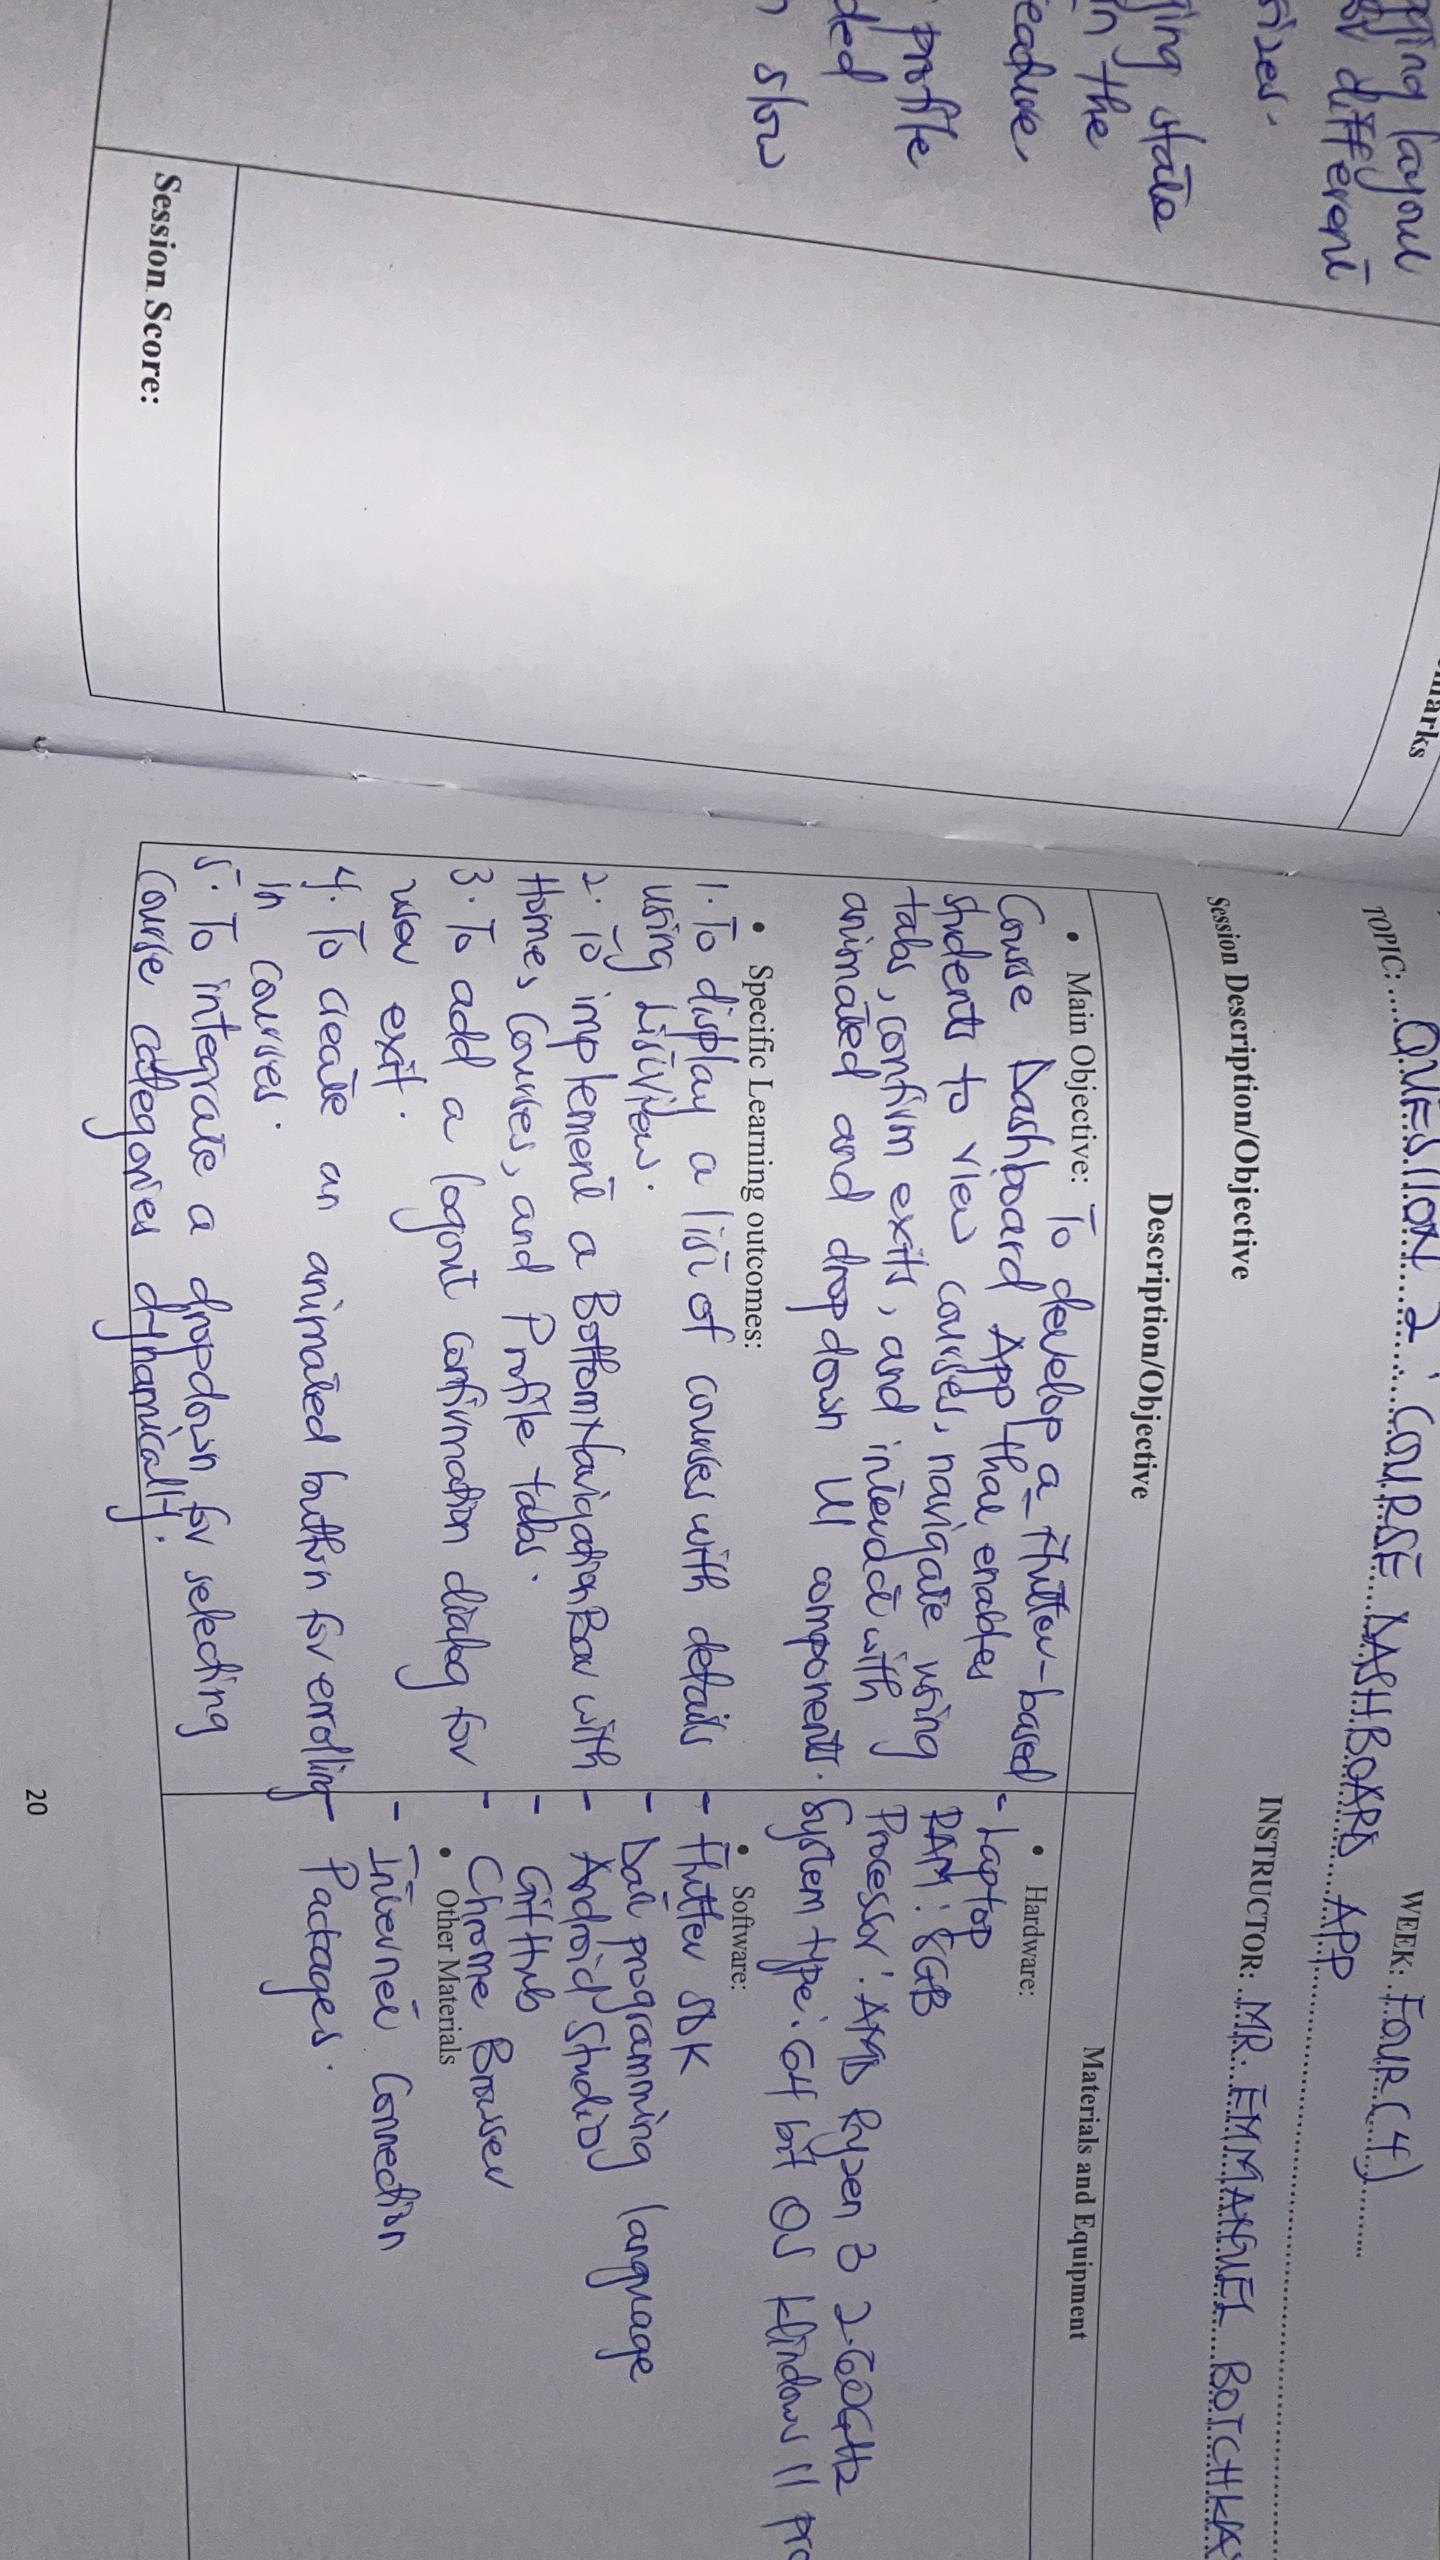 layout
different
sizes.
state
in the
profile
slow
Session Score:
WEEK: FOUR (4)
TOPIC: QUESTION 2: COURSE DASHBOARD APP
INSTRUCTOR: MR. EMMANUEL
Session Description/Objective
Description/Objective
• Main Objective: To develop a Flutter-based
Course Dashboard App that enables
students to view courses, navigate using
tabs, confirm exits, and interact with
animated and dropdown UI components.
• Specific Learning outcomes:
1. To display a list of courses with details
using ListView.
2. To implement a BottomNavigationBar with
Home, Courses, and Profile tabs.
3. To add a logout confirmation dialog for
user exit.
4. To create an animated button for enrolling
in courses.
5. To integrate a dropdown for selecting
course categories dynamically.
Materials and Equipment
• Hardware:
- Laptop
RAM: 8GB
Processor: AMD Ryzen 3 2.60GHz
System type: 64 bit OS Windows 11
• Software:
- Flutter SDK
- Dart programming language
- Android Studio
- GitHub
- Chrome Browser
• Other Materials
- Internet Connection
- Packages.
20